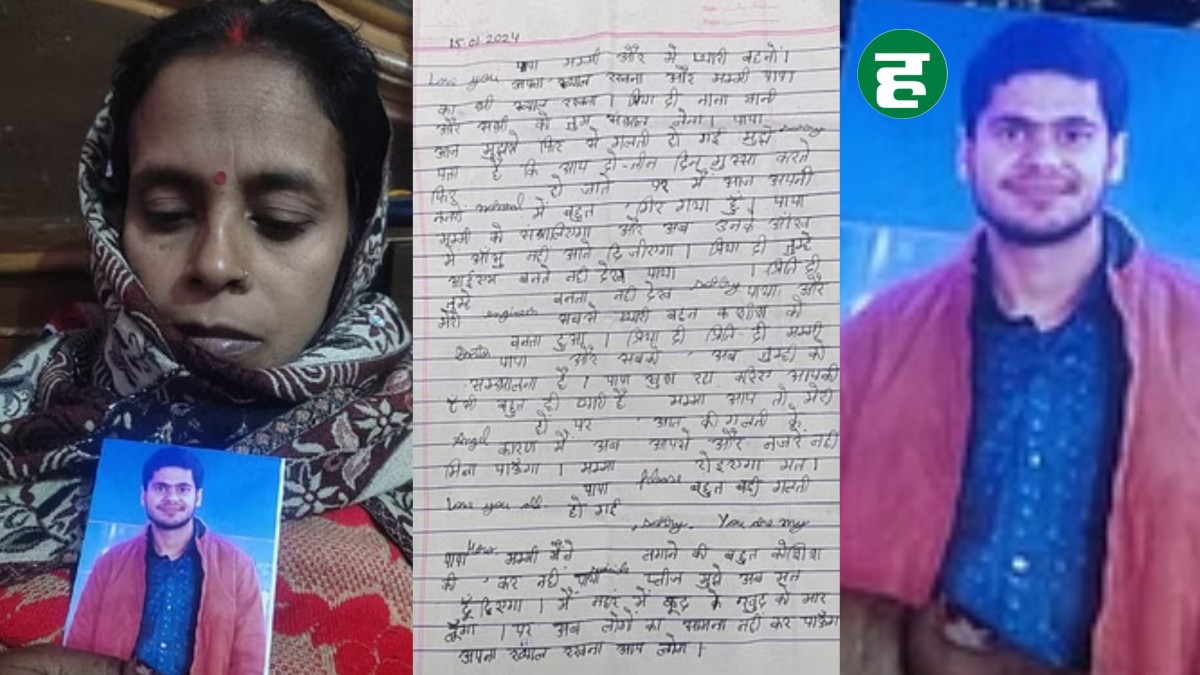 ह
15.01.2024
पापा मम्मी और मेरी प्यारी बहनों।
Love you अपना ख्याल रखना और मम्मी पापा
का भी ख्याल रखना। प्रिया दी नाना नानी
और सभी को तुम संभाल लेना। पापा
आज मुझसे फिर से गलती हो गई मुझे sorry
पता है कि आप दो-तीन दिन गुस्सा करते
फिर हो जाते पर मैं आज अपनी
नजरों में बहुत गिर गया हूं। पापा
मम्मी को संभालिएगा और अब उनके आँख
में आँसू नहीं आने दिजीएगा। प्रिया दी तुम्हे
बनते नहीं देख पाया । प्रिति दी
तुम्हे बनता नहीं देख sorry पाया और
मेरी engineer सबसे प्यारी बहन को
बनता हुआ। प्रिया दी प्रिति दी मम्मी
पापा और सबको अब तुम्ही को
सम्भालना है। पापा खुश रहा करिए आपकी
बहुत ही प्यारी है मम्मा आप तो मेरी
हो पर आज की गलती के
Angel कारण मैं अब आपसे और नजरे नहीं
मिला पाऊंगा। मम्मा रोइएगा मत।
पापा Please बहुत बड़ी गलती
Love you all. हो गई
, sorry. You are my
पापा Hero मम्मी मैंने लगाने की बहुत कोशिश
की कर नहीं पाया suicide प्लीज मुझे अब मत
ढूँढिएगा। मैं नहर में कूद के खुद को मार
लूँगा। पर अब लोगों का सामना नहीं कर पाऊँगा
अपना ख्याल रखना आप लोग।